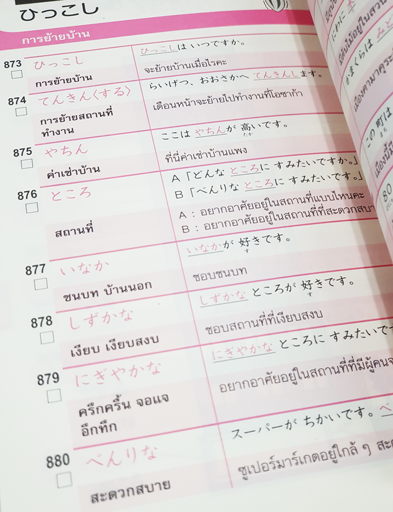 ひっこし
การย้ายบ้าน
873 ひっこし
การย้ายบ้าน
ひっこしは いつですか。
จะย้ายบ้านเมื่อไรคะ
874 てんきん〈する〉
การย้ายสถานที่
ทำงาน
らいげつ、おおさかへ てんきんします。
เดือนหน้าจะย้ายไปทำงานที่โอซาก้า
875 やちん
ค่าเช่าบ้าน
ここは やちんが 高いです。
ที่นี่ค่าเช่าบ้านแพง
876 ところ
สถานที่
A「どんな ところに すみたいですか。」
B「べんりな ところに すみたいです。」
A : อยากอาศัยอยู่ในสถานที่แบบไหนคะ
B : อยากอาศัยอยู่ในสถานที่ที่สะดวกสบาย
877 いなか
ชนบท บ้านนอก
いなかが 好きです。
ชอบชนบท
878 しずかな
เงียบ เงียบสงบ
しずかな ところが 好きです。
ชอบสถานที่ที่เงียบสงบ
879 にぎやかな
ครึกครื้น จอแจ
อึกทึก
にぎやかな ところに すみたいで
อยากอาศัยอยู่ในสถานที่ที่มีผู้คน
880 べんりな
สะดวกสบาย
スーパーが ちかいです。
ซูเปอร์มาร์เกตอยู่ใกล้ ๆ